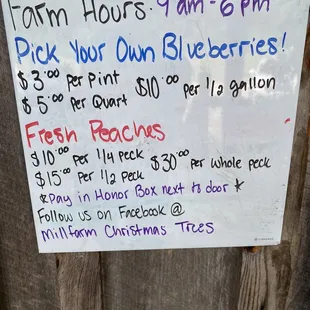 Farm Hours: 9am-6pm
Pick Your Own Blueberries!
$3.00 Per Pint
$5.00 Per Quart
$10.00 per 1/2 gallon
Fresh Peaches
$10.00 per 1/4 peck
$15.00 per 1/2 peck
$30.00 Per whole peck
*Pay in Honor Box next to door*
Follow us on Facebook @
Millfarm Christmas Trees